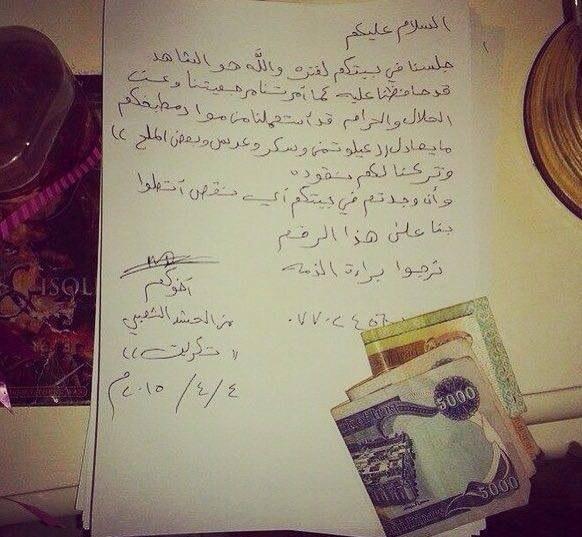 السلام عليكم
جلسنا في بيتكم لفتره والله هو الشاهد
قد حافظنا عليه كما أمرتنا مرجعيتنا وعن
الحلال والحرام قد استعملنا من مواد مطبخكم
ما يعادل كيلو تمن وسكر وعدس وبعض الملح ))
وتركنا لكم نقوده
وأن وجدتم في بيتكم أي نقص أتصلوا
بنا على هذا الرقم
نرجوا براءة الذمه
أخوكم
من الحشد الشعبي
(( تكريت ))
٤ / ٤ / ٢٠١٥ م
٠٧٧٠٢٤٥
5000
5000
ISOL